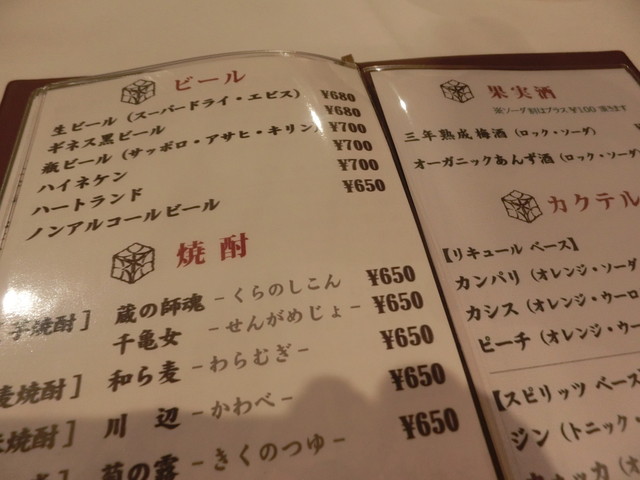 ビール
生ビール（スーパードライ・エビス） ¥680
ギネス黒ビール ¥680
瓶ビール（サッポロ・アサヒ・キリン） ¥700
ハイネケン ¥700
ハートランド ¥700
ノンアルコールビール ¥650
焼酎
芋焼酎］ 蔵の師魂 －くらのしこん ¥650
千亀女 －せんがめじょ－ ¥650
麦焼酎］ 和ら麦 －わらむぎ－ ¥650
米焼酎］ 川 辺 －かわべ－ ¥650
菊の露 －きくのつゆ－ ¥650
果実酒
※ソーダ割はプラス¥100 頂きます
三年熟成梅酒（ロック・ソーダ）
オーガニックあんず酒（ロック・ソー
カクテル
【リキュール ベース】
カンパリ（オレンジ・ソーダ
カシス（オレンジ・ウーロ
ピーチ（オレンジ・ウーロ
【スピリッツ ベース】
ジン（トニック・